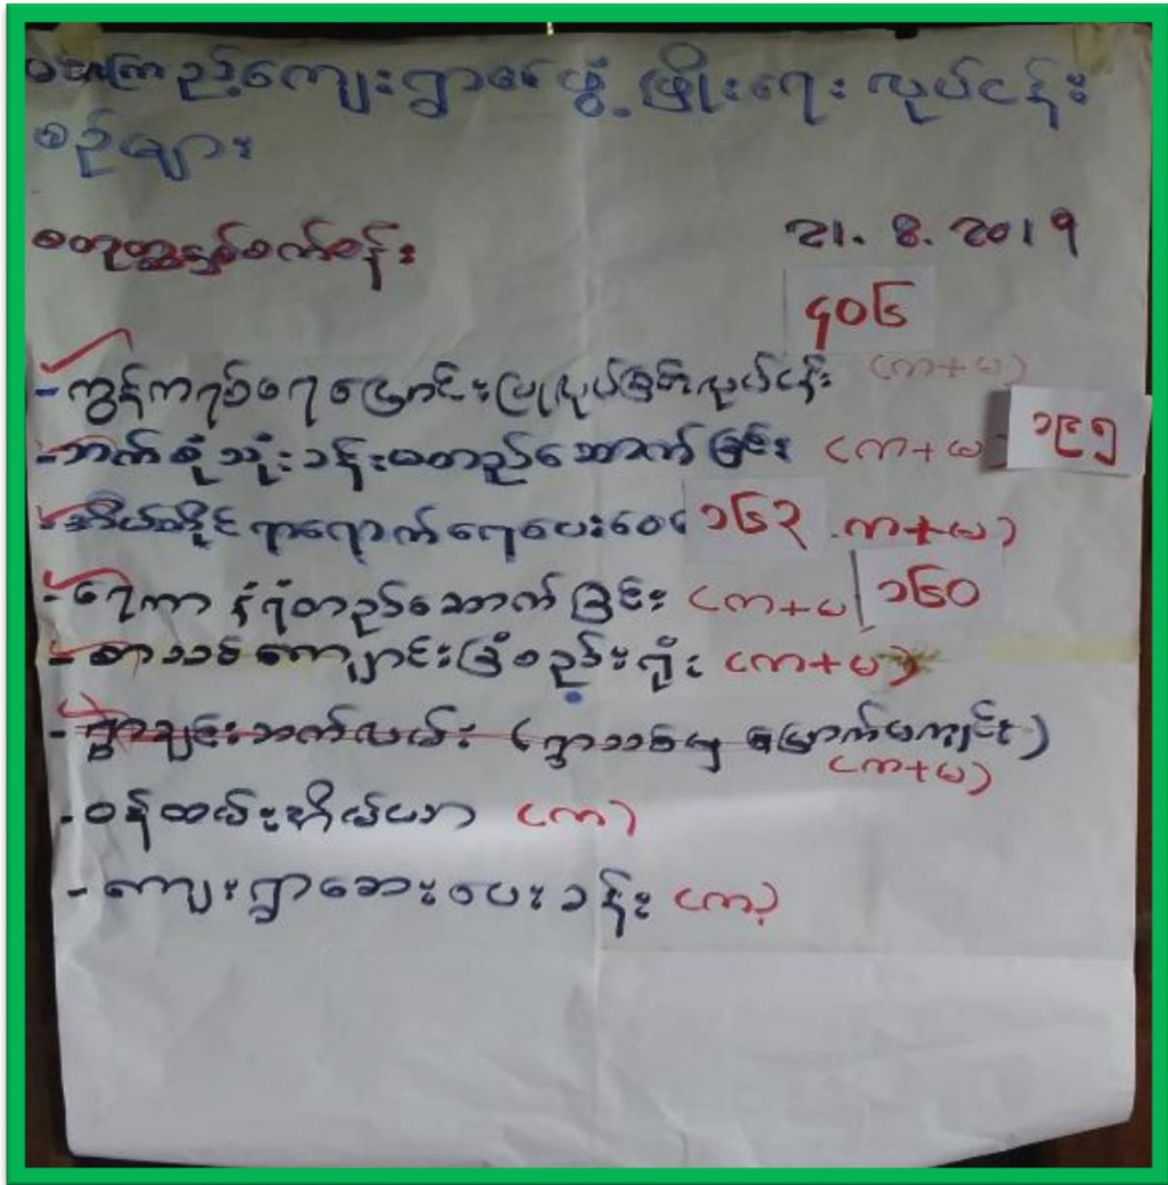 ကျေးရွာဖွံ့ဖြိုးရေး လုပ်ငန်း
စဉ်များ
စတုတ္ထနှစ်စက်ဝန်း 21. 8. 2019
၄၀၆
- ကွန်ကရစ်ရေမြောင်းပြုလုပ်ခြင်းလုပ်ငန်း (က+မ)
- ဘက်စုံသုံးခန်းမတည်ဆောက်ခြင်း (က+မ) ၁၉၅
- အိမ်တိုင်ရာရောက်ရေပေးဝေ ၁၆၃ က+မ)
- ရေကာ နံရံတည်ဆောက်ခြင်း (က+မ ၁၆၀
- စာသင်ကျောင်းခြံစည်းရိုး (က+မ)
- ရွာချင်းဆက်လမ်း (ရွာသစ်မှ
(က+မ)
- ဝန်ထမ်းအိမ်ယာ (က)
- ကျေးရွာဆေးပေးခန်း (က)